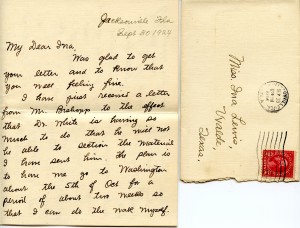 Jacksonville Fla
Sept 30, 1924
My Dear Ina,
Was glad to get
your letter and to know that
you were feeling fine.
I have just received a letter
from Mr. to the effect
that Dr. White is having so
much to do that he will not
be able to section the material
I have sent him. His plan is
to have me go to Washington
about the 5th of Oct for a
period of about two weeks so
that I can do the work myself.
Miss Ina Lewis,
Uvalde,
Texas.